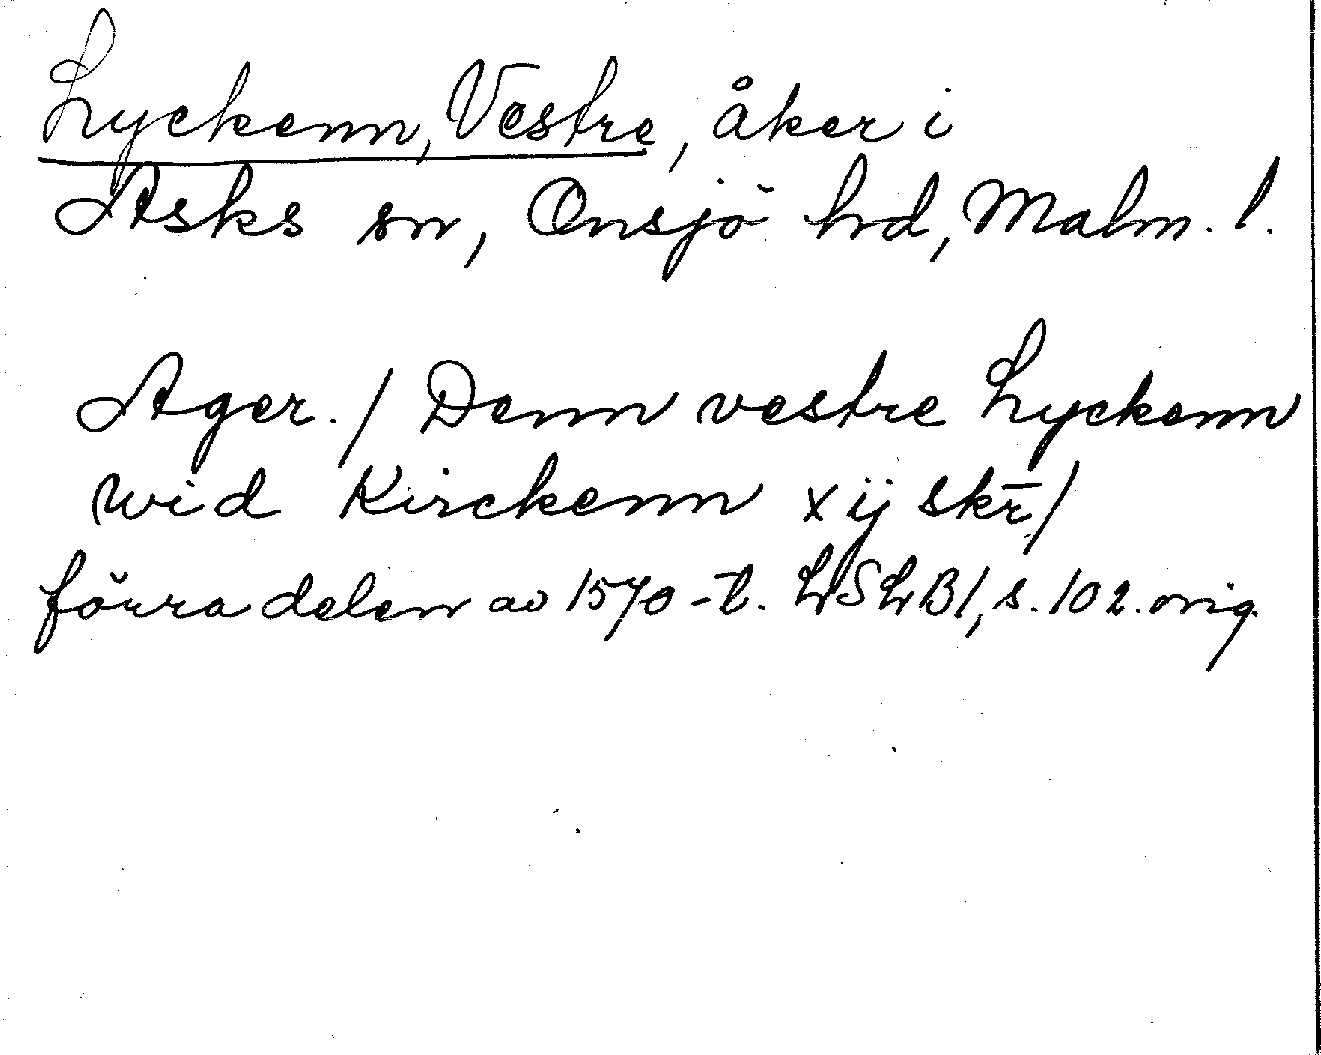 Lyckenn, Vestre, åker i
Asks sn, Onsjö hd, Malm. l.
Ager. / Denn vestre Lyckenn
wid Kirckenn xij skr̄ /
förra delen av 1570-t. LSLB1, s. 102. orig.